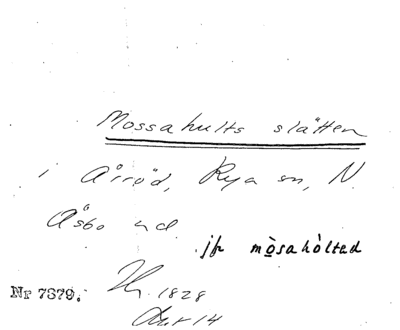 Mossahults slätten
i Årröd, Rya sn, N.
Åsbo hd
jfr mòsahòltad
Nr 7679.
1828
14